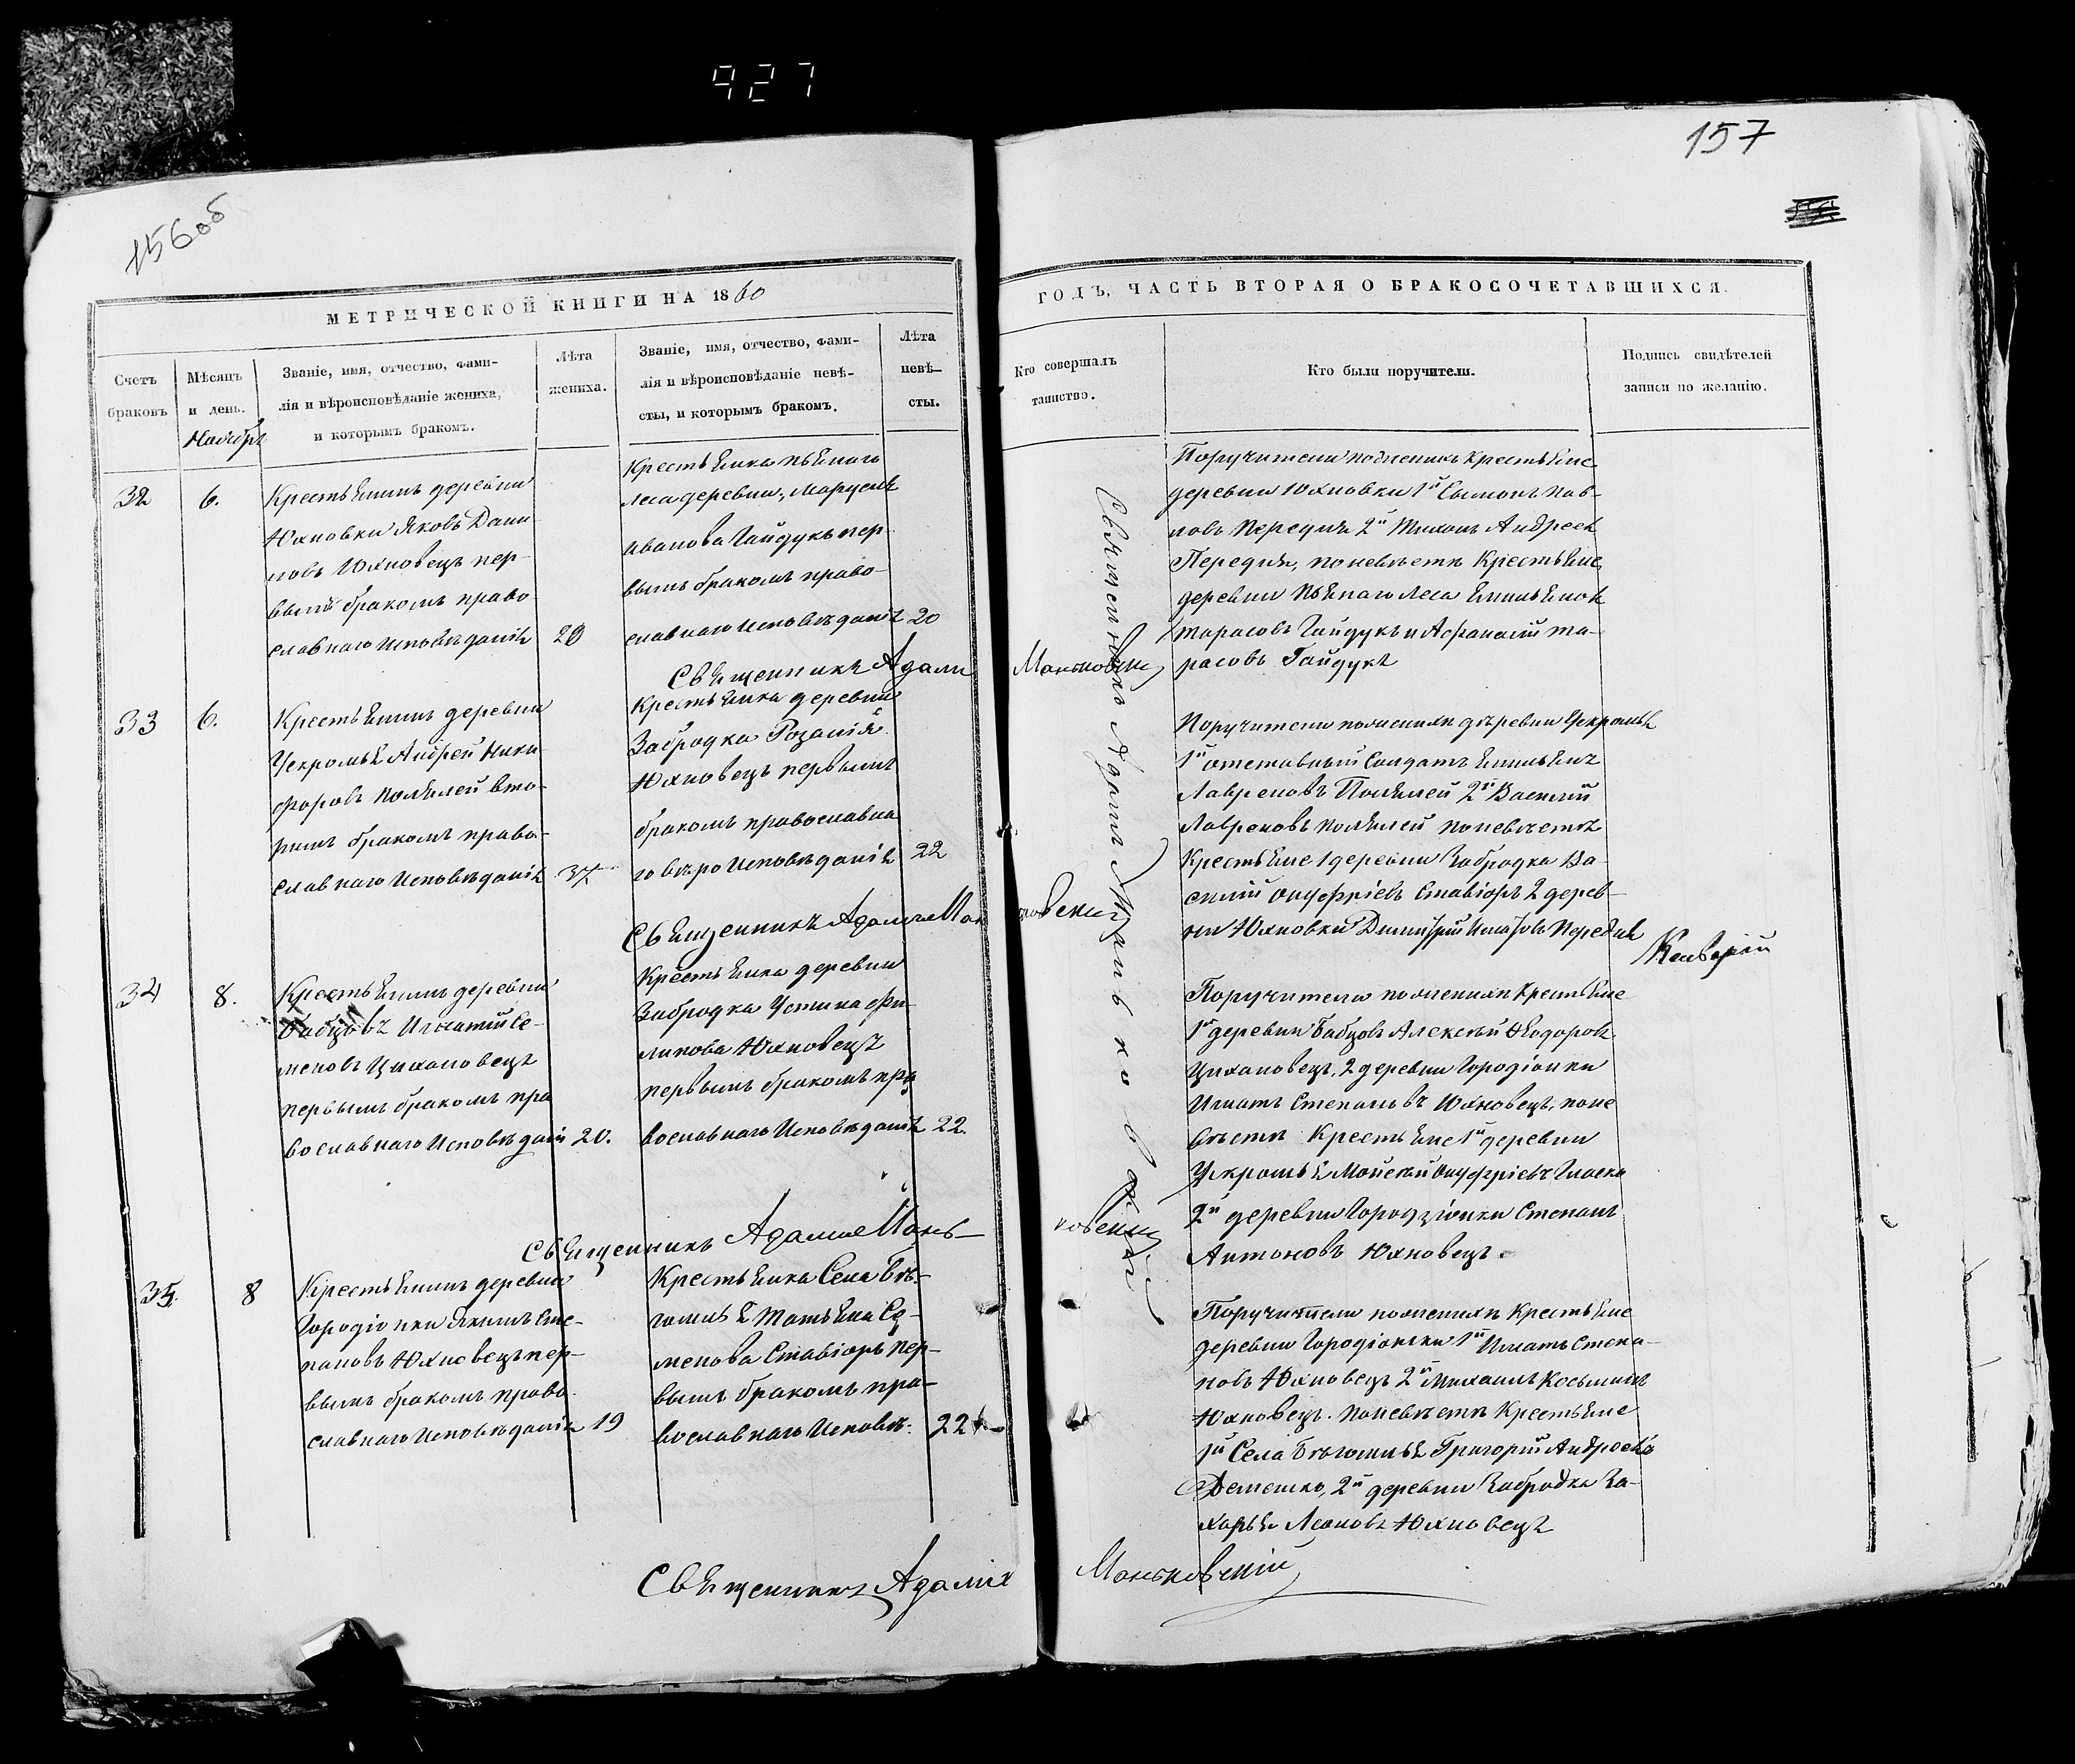 927
156об
157
МЕТРИЧЕСКОЙ КНИГИ НА 1860
ГОДЪ, ЧАСТЬ ВТОРАЯ О БРАКОСОЧЕТАВШИХСЯ.
Счетъ
браковъ
Мѣсяцъ
и день.
Ноябрь
Званіе, имя, отчество, фами-
лія и вѣроисповѣданіе жениха,
и которымъ бракомъ.
Лѣта
жениха.
Званіе, имя, отчество, фами-
лія и вѣроисповѣданіе невѣ-
сты, и которымъ бракомъ.
Лѣта
невѣ-
сты.
Кто совершалъ
таинство.
Кто были поручители.
Подпись свидѣтелей
записи по желанію.
32
6.
Крестьянинъ деревни
Юхновки Яковъ Дани-
ловъ Юхновецъ пер-
вымъ бракомъ право-
славнаго исповѣданія
20
Крестьянка
леса деревни, Маруся
Иванова Гайдукъ пер-
вымъ бракомъ право-
славнаго исповѣданія 20
Священникъ Адамъ Маньковскій
Поручители по женихѣ крестьяне
деревни Юхновки 1й Сымонъ Пав-
ловъ Передня 2й Тихонъ Андреевъ
Передня, по невѣстѣ Крестьяне
деревни леса Емильянъ
Тарасовъ Гайдукъ и Афанасій Та-
расовъ Гайдукъ
33
6.
Крестьянинъ деревни
Ускромья Андрей Ники-
форовъ Помялей вто-
рымъ бракомъ право-
славнаго исповѣданія
37
Крестьянка деревни
Забродка Розалія
Юхновецъ первымъ
бракомъ православна
го вѣроисповѣданія 22
Священникъ Адамъ Маньковскій
Поручители по женихѣ деревни Ускромья
1й отставный Солдатъ Емильянъ
Лавреновъ Помялей 2й Василій
Лавреновъ Помялей по невѣстѣ
Крестьяне 1 деревни Забродка Ва-
силій Онуфріевъ Ставіоръ 2 дерев-
ни Юхновки Димитрій Передня
34
8.
Крестьянинъ деревни
Бабцовъ Игнатій Се-
меновъ Цихановецъ
первымъ бракомъ пра
вославнаго исповѣданія 20.
Крестьянка деревни
Забродка Устина Фи-
липова Юхновецъ
первымъ бракомъ пра
вославнаго исповѣданія 22.
Священникъ Адамъ Маньковскій
Поручители по женихѣ Крестьяне
1й деревни Бабцовъ Алексѣй Ѳеодоровъ
Цихановецъ, 2 деревни Городіонки
Игнатъ Степановъ Юхновецъ, по не
вѣстѣ Крестьяне 1й деревни
Ускромья Мойсѣй Онуфріевъ
2й деревни Городіонки Степанъ
Антоновъ Юхновецъ.
35.
8
Крестьянинъ деревни
Городіонки Якимъ Сте-
пановъ Юхновецъ пер-
вымъ бракомъ право-
славнаго исповѣданія 19
Крестьянка Села Бѣ-
гомля Татьяна Се-
менова Ставіоръ пер-
вымъ бракомъ пра-
вославнаго исповѣ: 22
Поручители по женихѣ Крестьяне
деревни Городіонки 1й Игнатъ Степа-
новъ Юхновецъ 2й Михаилъ Косьминъ
Юхновецъ. По невѣстѣ Крестьяне
1й Села Бѣгомля Григорій Андреевъ
Демешко, 2й деревни Забродка За-
харья Леоновъ Юхновецъ
Священникъ Адамъ Маньковскій
Священникъ Адамъ Маньковскій